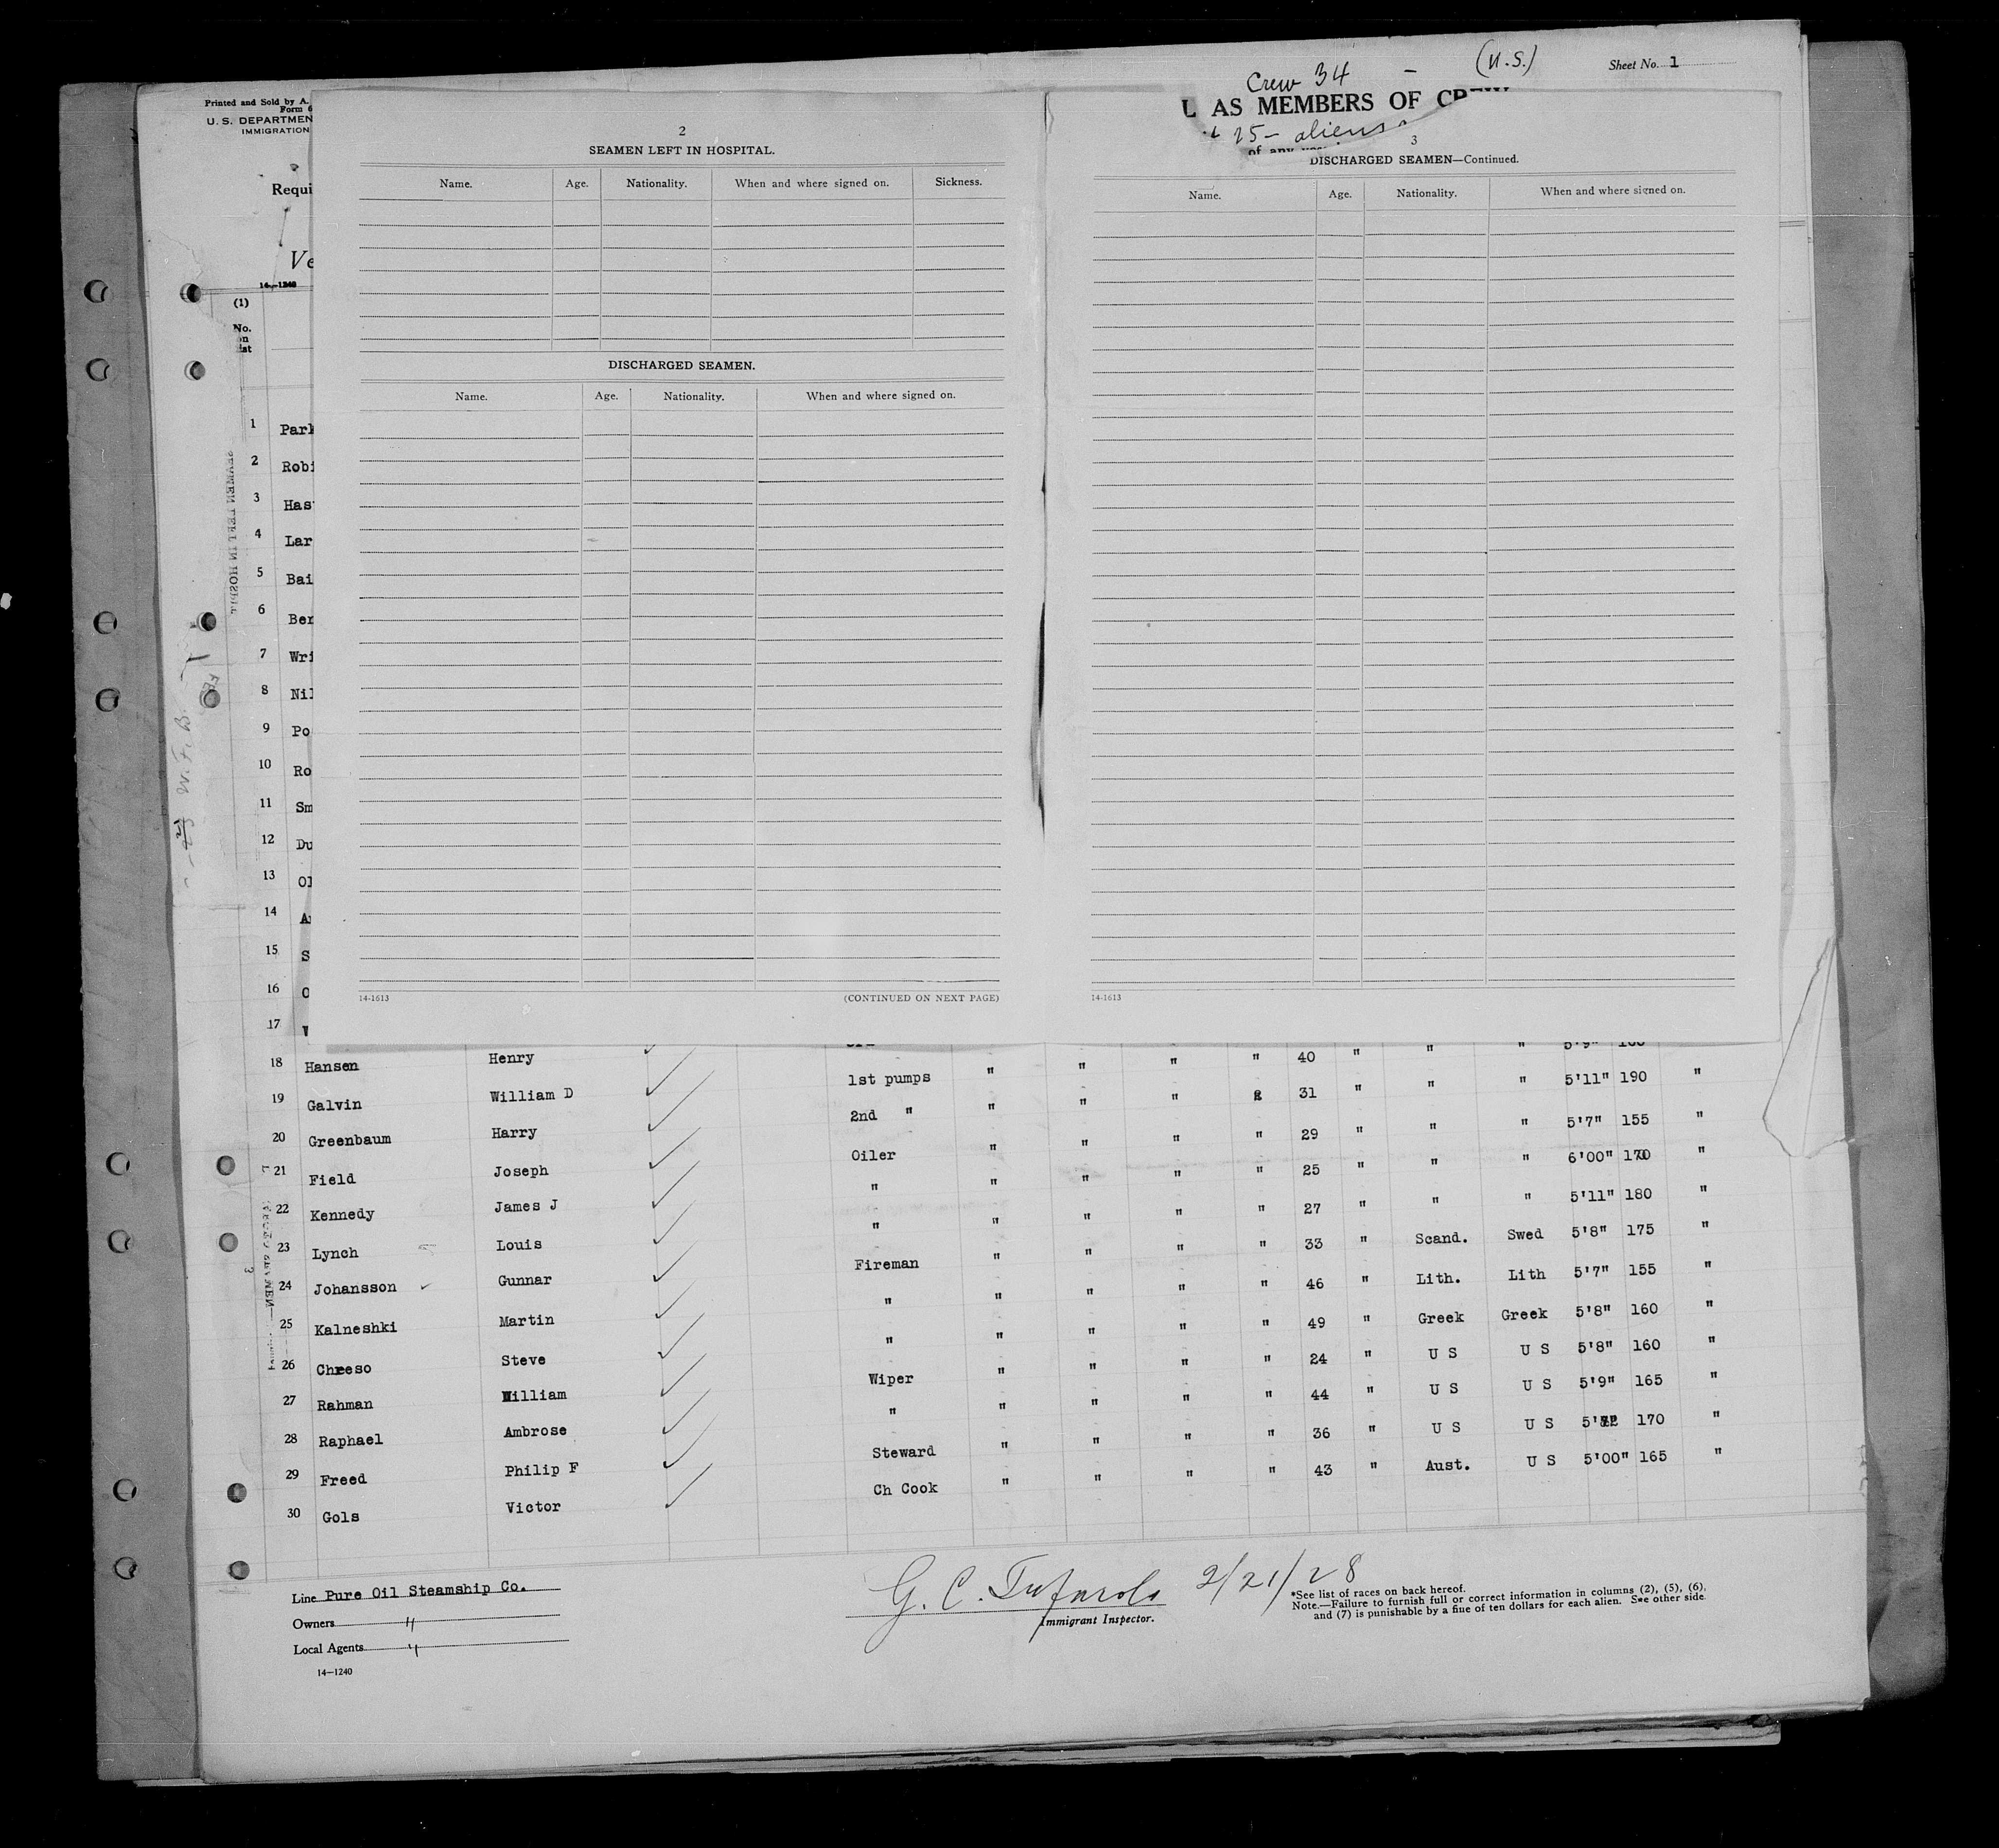 Crew 34 - (U.S.)
Sheet No. 1
Printed and Sold by A.
Form 6
U. S. DEPARTMEN
IMMIGRATION
L AS MEMBERS OF CREW
25- aliens
of any
Requi
Ve
14-1240
(1)
No.
on
list
2
SEAMEN LEFT IN HOSPITAL.
Name. Age. Nationality. When and where signed on. Sickness.
DISCHARGED SEAMEN.
Name. Age. Nationality. When and where signed on.
14-1613 (CONTINUED ON NEXT PAGE)
3
DISCHARGED SEAMEN—Continued.
Name. Age. Nationality. When and where signed on.
14-1613
SEAMEN LEFT IN HOSPIT
W. F. B.
1 Park
2 Robi
3 Has
4 Lar
5 Bai
6 Ber
7 Wri
8 Nil
9 Po
10 Ro
11 Sm
12 Du
13 Ol
14 A
15 S
16 O
17 W
" " " 5'9"
18 Hansen Henry 1st pumps " " " " 40 " " " 5'11" 190 "
19 Galvin William D 2nd " " " " 31 " " " 5'7" 155 "
20 Greenbaum Harry Oiler " " " " 29 " " " 6'00" 170 "
21 Field Joseph " " " " " 25 " " " 5'11" 180 "
22 Kennedy James J " " " " " 27 " Scand. Swed 5'8" 175 "
23 Lynch Louis Fireman " " " " 33 " Lith. Lith 5'7" 155 "
24 Johansson Gunnar " " " " " 46 " Greek Greek 5'8" 160 "
25 Kalneshki Martin " " " " " 49 " U S U S 5'8" 160 "
26 Chreso Steve Wiper " " " " 24 " U S U S 5'9" 165 "
27 Rahman William " " " " " 44 " U S U S 170 "
28 Raphael Ambrose Steward " " " " 36 " Aust. U S 5'00" 165 "
29 Freed Philip F Ch Cook " " " " 43 "
30 Gols Victor
Line Pure Oil Steamship Co.
Owners "
Local Agents "
14-1240
G. C. 2/21/28
Immigrant Inspector.
*See list of races on back hereof.
Note.—Failure to furnish full or correct information in columns (2), (5), (6),
and (7) is punishable by a fine of ten dollars for each alien. See other side.